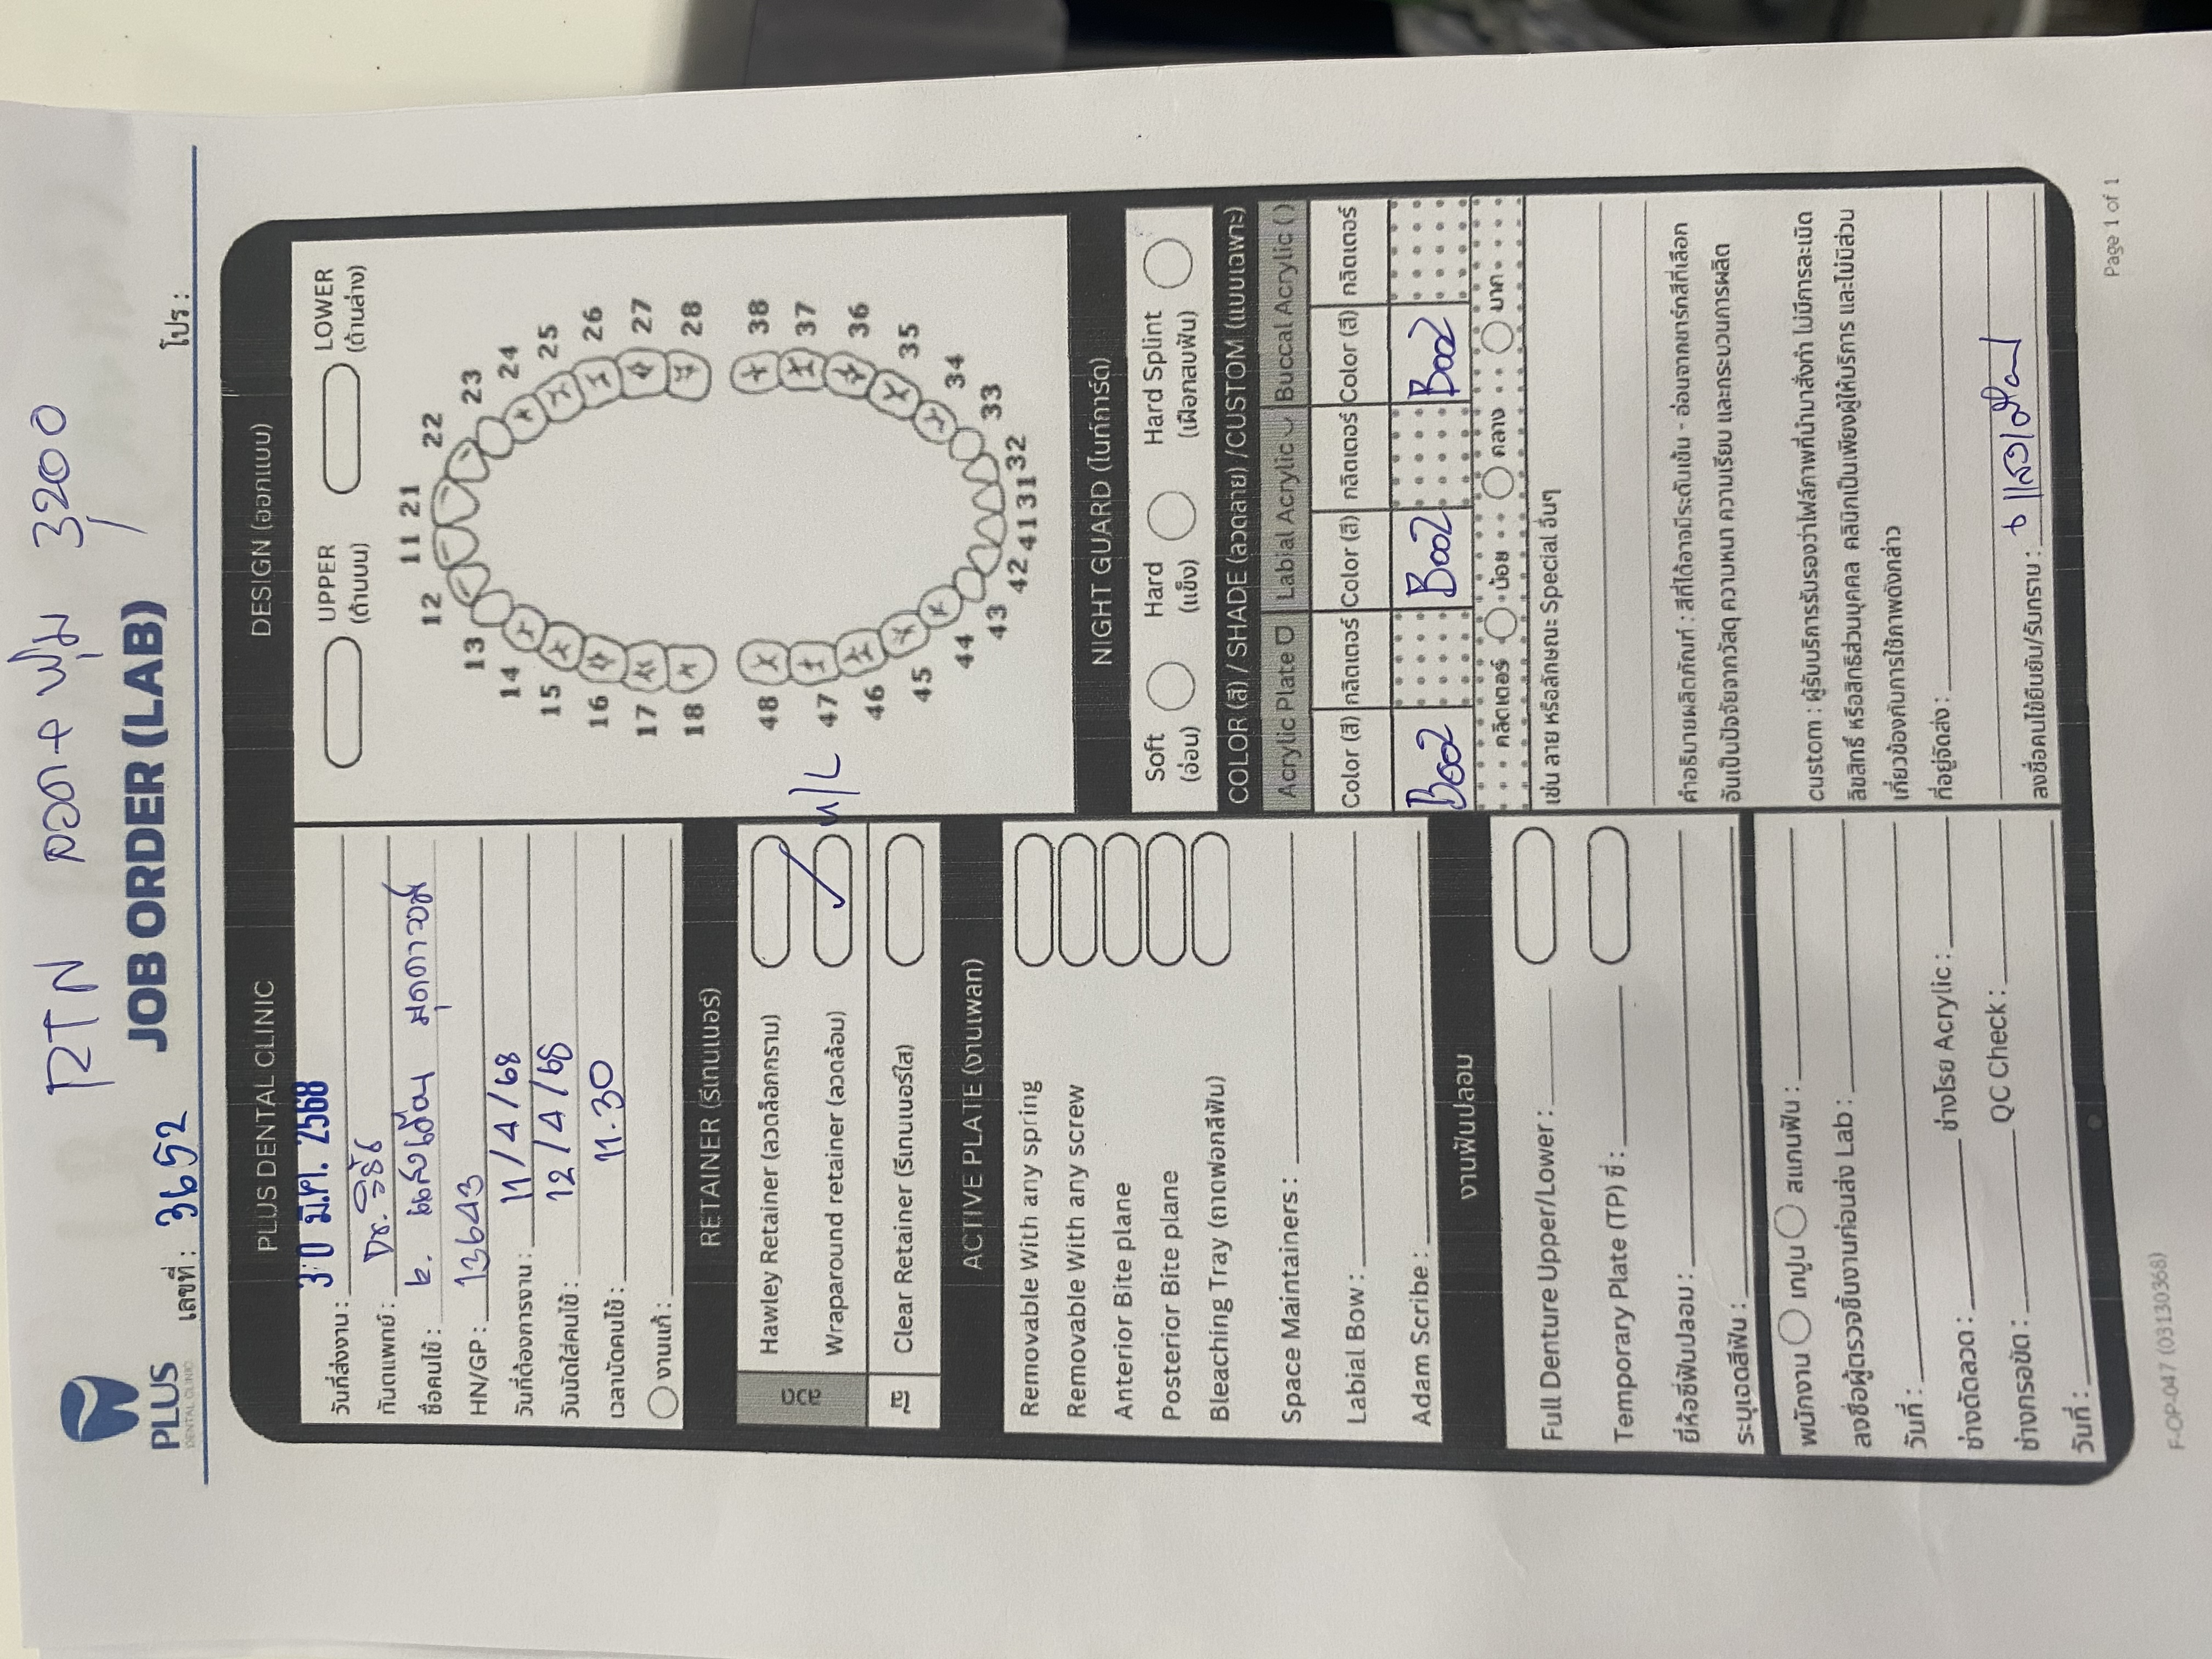 RTN ลวด+ฟุ่ม 3200
PLUS
DENTAL CLINIC
JOB ORDER (LAB)
เลขที่ : 3652
โปร :
PLUS DENTAL CLINIC
วันที่ส่งงาน : 30 มี.ค. 2568
ทันตแพทย์ : Dr.
ชื่อคนไข้ :
HN/GP : 13643
วันที่ต้องการงาน : 11/4/68
วันนัดใส่คนไข้ : 12/4/68
เวลานัดคนไข้ : 11.30
งานแก้ :
RETAINER (รีเทนเนอร์)
ลวด
Hawley Retainer (ลวดล็อกกราม)
Wraparound retainer (ลวดล้อม) U/L
ใส
Clear Retainer (รีเทนเนอร์ใส)
ACTIVE PLATE (งานเพลท)
Removable With any spring
Removable With any screw
Anterior Bite plane
Posterior Bite plane
Bleaching Tray (ถาดฟอกสีฟัน)
Space Maintainers :
Labial Bow :
Adam Scribe :
งานฟันปลอม
Full Denture Upper/Lower :
Temporary Plate (TP) ซี่ :
ยี่ห้อซี่ฟันปลอม :
ระบุเฉดสีฟัน :
พนักงาน เทปูน สแกนฟัน :
ลงชื่อผู้ตรวจชิ้นงานก่อนส่ง Lab :
วันที่ :
ช่างดัดลวด : ช่างโรย Acrylic :
ช่างกรอขัด : QC Check :
วันที่ :
DESIGN (ออกแบบ)
UPPER
(ด้านบน)
LOWER
(ด้านล่าง)
11 21
12 22
13 23
14 24
15 25
16 26
17 27
18 28
48 38
47 37
46 36
45 35
44 34
43 33
42 41 31 32
NIGHT GUARD (ไนท์การ์ด)
Soft
(อ่อน)
Hard
(แข็ง)
Hard Splint
(เฝือกสบฟัน)
COLOR (สี) / SHADE (ลวดลาย) /CUSTOM (แบบเฉพาะ)
Acrylic Plate Labial Acrylic Buccal Acrylic ( )
Color (สี) กลิตเตอร์ Color (สี) กลิตเตอร์ Color (สี) กลิตเตอร์
B002 B002 B002
กลิตเตอร์ น้อย กลาง มาก
เช่น ลาย หรือลักษณะ Special อื่นๆ
คำอธิบายผลิตภัณฑ์ : สีที่ได้อาจมีระดับเข้ม - อ่อนจากชาร์กสีที่เลือก
อันเป็นปัจจัยจากวัสดุ ความหนา ความเรียบ และกระบวนการผลิต
custom : ผู้รับบริการรับรองว่าไฟล์ภาพที่นำมาสั่งทำ ไม่มีการละเมิด
ลิขสิทธิ์ หรือสิทธิส่วนบุคคล คลินิกเป็นเพียงผู้ให้บริการ และไม่มีส่วน
เกี่ยวข้องกับการใช้ภาพดังกล่าว
ที่อยู่จัดส่ง :
ลงชื่อคนไข้ยืนยัน/รับทราบ :
Page 1 of 1
F-OP-047 (03130368)